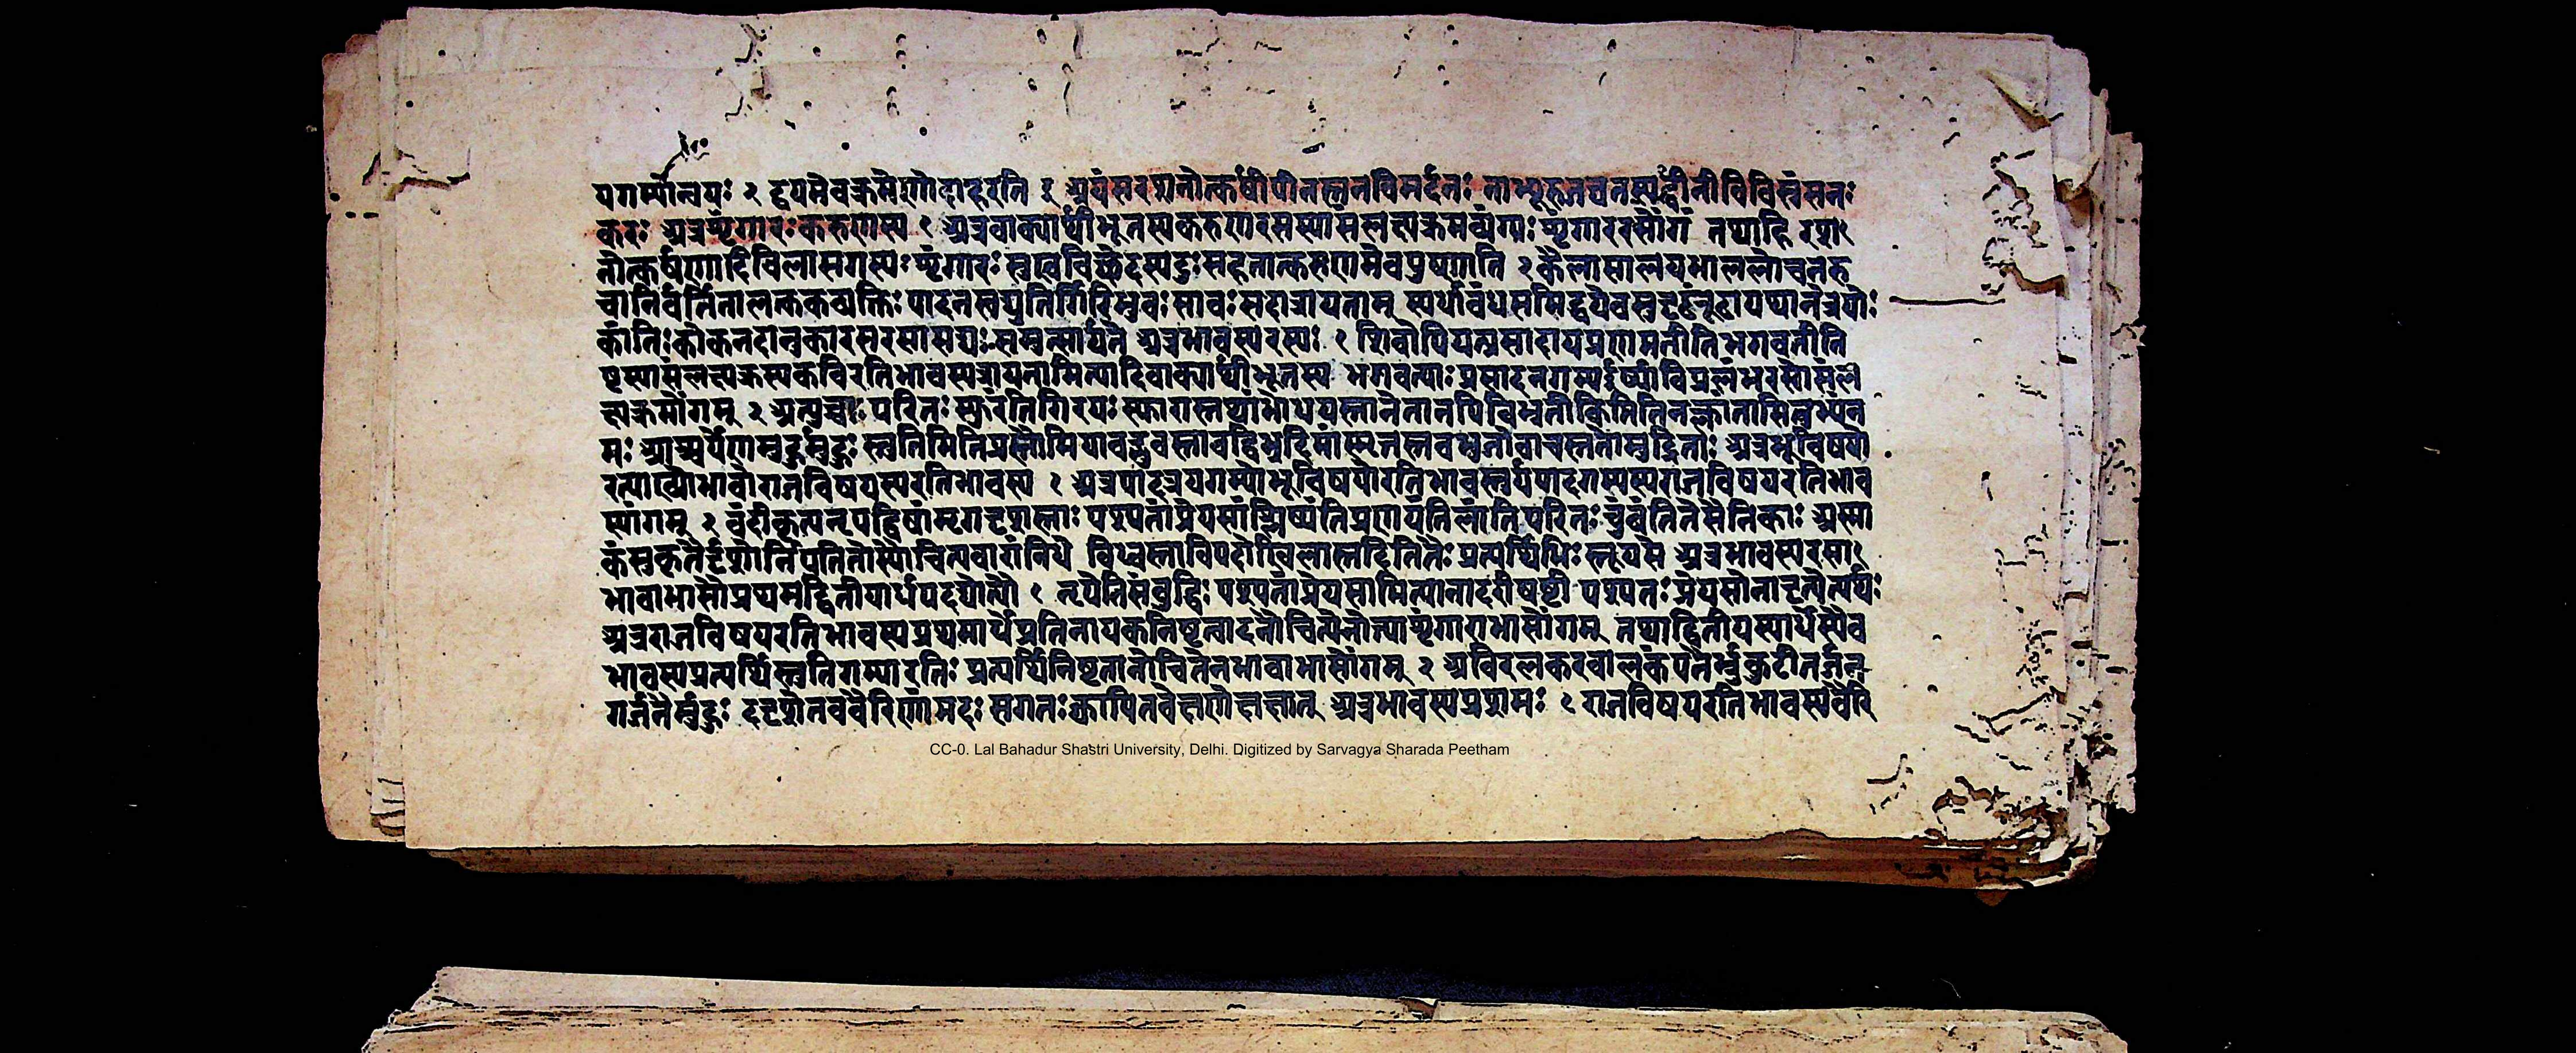 यगर्म्यान्वयः २ द्वयमेवक्रमेणोदाहरति १ अयंसरशनोत्कर्षीपीनस्तनविमर्दनः नाभ्यूरुजघनस्पर्शीनीविविस्रंसनः
करः अत्रशृंगारःकरुणस्य १ अत्रवाक्यार्थीभूतस्यकरुणरसस्यासंलक्ष्यक्रमव्यंग्यः शृंगाररसोंगं तथाहि रशा१
नोत्कर्षणादिविलासगम्यः शृंगारः विच्छेदस्यदुःसहतात्करुणमेवपुष्णाति २ कैलासालयभाललोचनरु
चानिर्वर्तितालक्तकव्यक्तिः पादनखद्युतिर्गिरिभुवः सावःसदात्रायताम् स्पर्धाबंधसमिद्धयेवसुदृढंरूढाययानेत्रयोः
कांतिःकोकनदानुकारसरसासद्यःसमुत्सार्यते अत्रभावस्यरसः १ शिवोपियत्प्रसादायप्रणमतीतिभगवतीति
भावस्यत्रायतामित्यादिवाक्यार्थीभूतस्य भगवत्याःप्रसादनगम्य विप्रलंभरसोसंल
क्ष्यक्रमोंगम् २ अत्युच्चाः परितः स्फुरंतिगिरयः स्फारास्तथांभोधयस्तानेतानपिबिभ्रतीकिमितिनक्लांतासितुभ्यंन
मः आश्चर्येणमुहुर्मुहुः स्तुतिमितिप्रस्तौमियावद्भुवस्तावद्बिभ्रदिमांस्मृतस्तवभुजोवाचस्ततोमुद्रिताः अत्रभूविषयो
रत्याख्योभावोराजविषयस्यरतिभावस्य १ अत्रपादत्रयगम्योभूविषयोरतिभावस्तुर्यपादगम्यस्यराजविषयरतिभाव
स्यांगम् २ बंदीकृत्यनृपद्विषांमृगदृशस्ताः पश्यतांप्रेयसांश्लिष्यंतिप्रणमंतिलांतिपरितःचुंबंतितेसैनिकाः अस्मा
कंसुकृतैर्दृशोर्निपतितोस्यौचित्यवारांनिधे विध्वस्ताविपदोखिलास्तदितितैः प्रत्यर्थिभिः स्तूयसे अत्रभावस्यरसा१
भावाभासौप्रथमद्वितीयार्धपदद्योत्यौ १ नृपेतिसंबुद्धिः पश्यतांप्रेयसामित्यनादरेषष्ठी पश्यतः प्रेयसोनादृत्येत्यर्थः
अत्रराजविषयरतिभावस्यप्रथमार्धेप्रतिनायकनिष्ठत्वादनौचित्येन शृंगाराभासोंगम् तथाद्वितीयस्यार्धस्यैव
भावस्यप्रत्यर्थिस्तुतिगम्यारतिः प्रत्यर्थिनिष्ठतानौचितेनभावाभासोंगम् २ अविरलकरवालकंपनैर्भ्रुकुटीतर्जन
गर्जनैर्मुहुः ददृशेतववैरिणांमदः सगतःक्वापितवेक्षणेक्षणात् अत्रभावस्यप्रशमः १ राजविषयरतिभावस्यवैरि
CC-0. Lal Bahadur Shastri University, Delhi. Digitized by Sarvagya Sharada Peetham